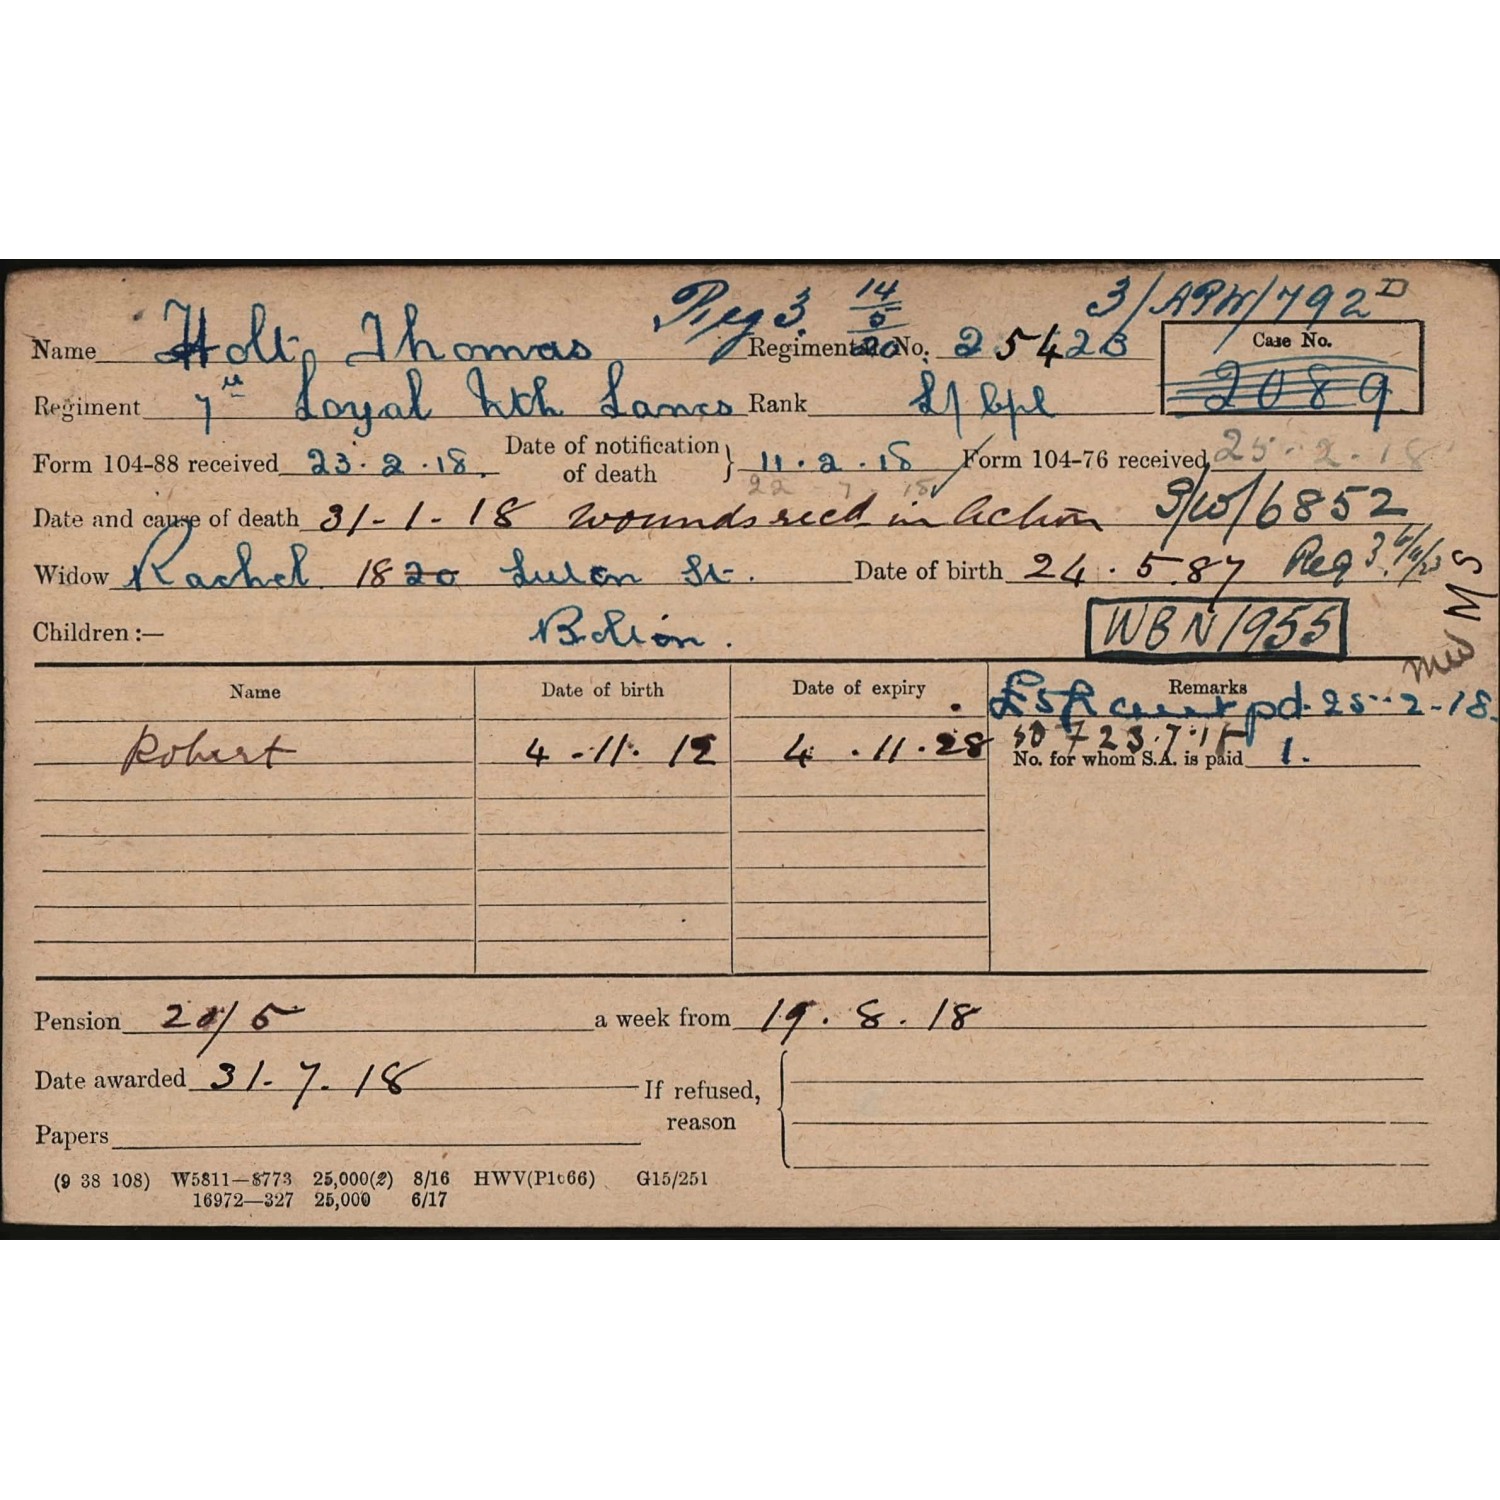 Reg 3 14/5/20 3/APW/792 D
Name Holt Thomas Regimental No. 25423
Case No.
2089
Regiment 7th Loyal Nth Lancs Rank L/Cpl
Form 104-88 received 23.2.18. Date of notification of death } 11.2.18 Form 104-76 received 25.2.18
22 7 18
Date and cause of death 31-1-18 Wounds recd in Action S/W/6852
Widow Rachel 18 20 St. Date of birth 24.5.87 Reg 3.
Children :— Bolton. WBN/1955
MS
Name Date of birth Date of expiry Remarks
£5 pd. 25-2-18.
Robert 4-11.12 4.11.28
No. for whom S.A. is paid 1.
Pension 20/5 a week from 19.8.18
Date awarded 31-7-18 If refused, reason
Papers
(9 38 108) W5811—8773 25,000(2) 8/16 HWV(P1666) G15/251
16972—327 25,000 6/17